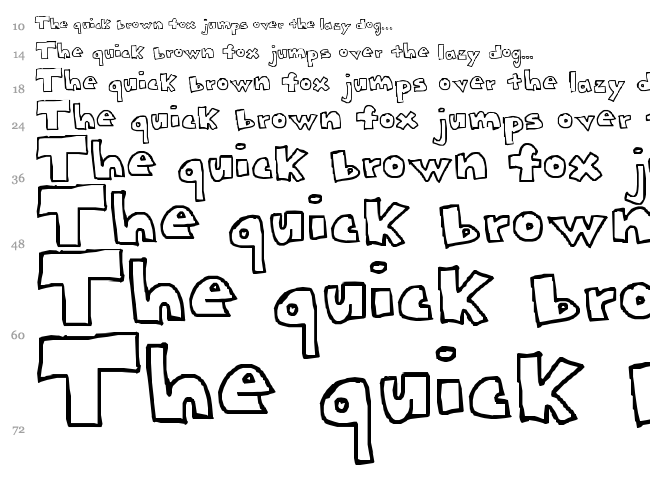 10 The quick brown fox jumps over the lazy dog...
14 The quick brown fox jumps over the lazy dog...
18 The quick brown fox jumps over the lazy d
24 The quick brown fox jumps over
36 The quick brown fox ju
48 The quick brown
60 The quick bro
72 The quick